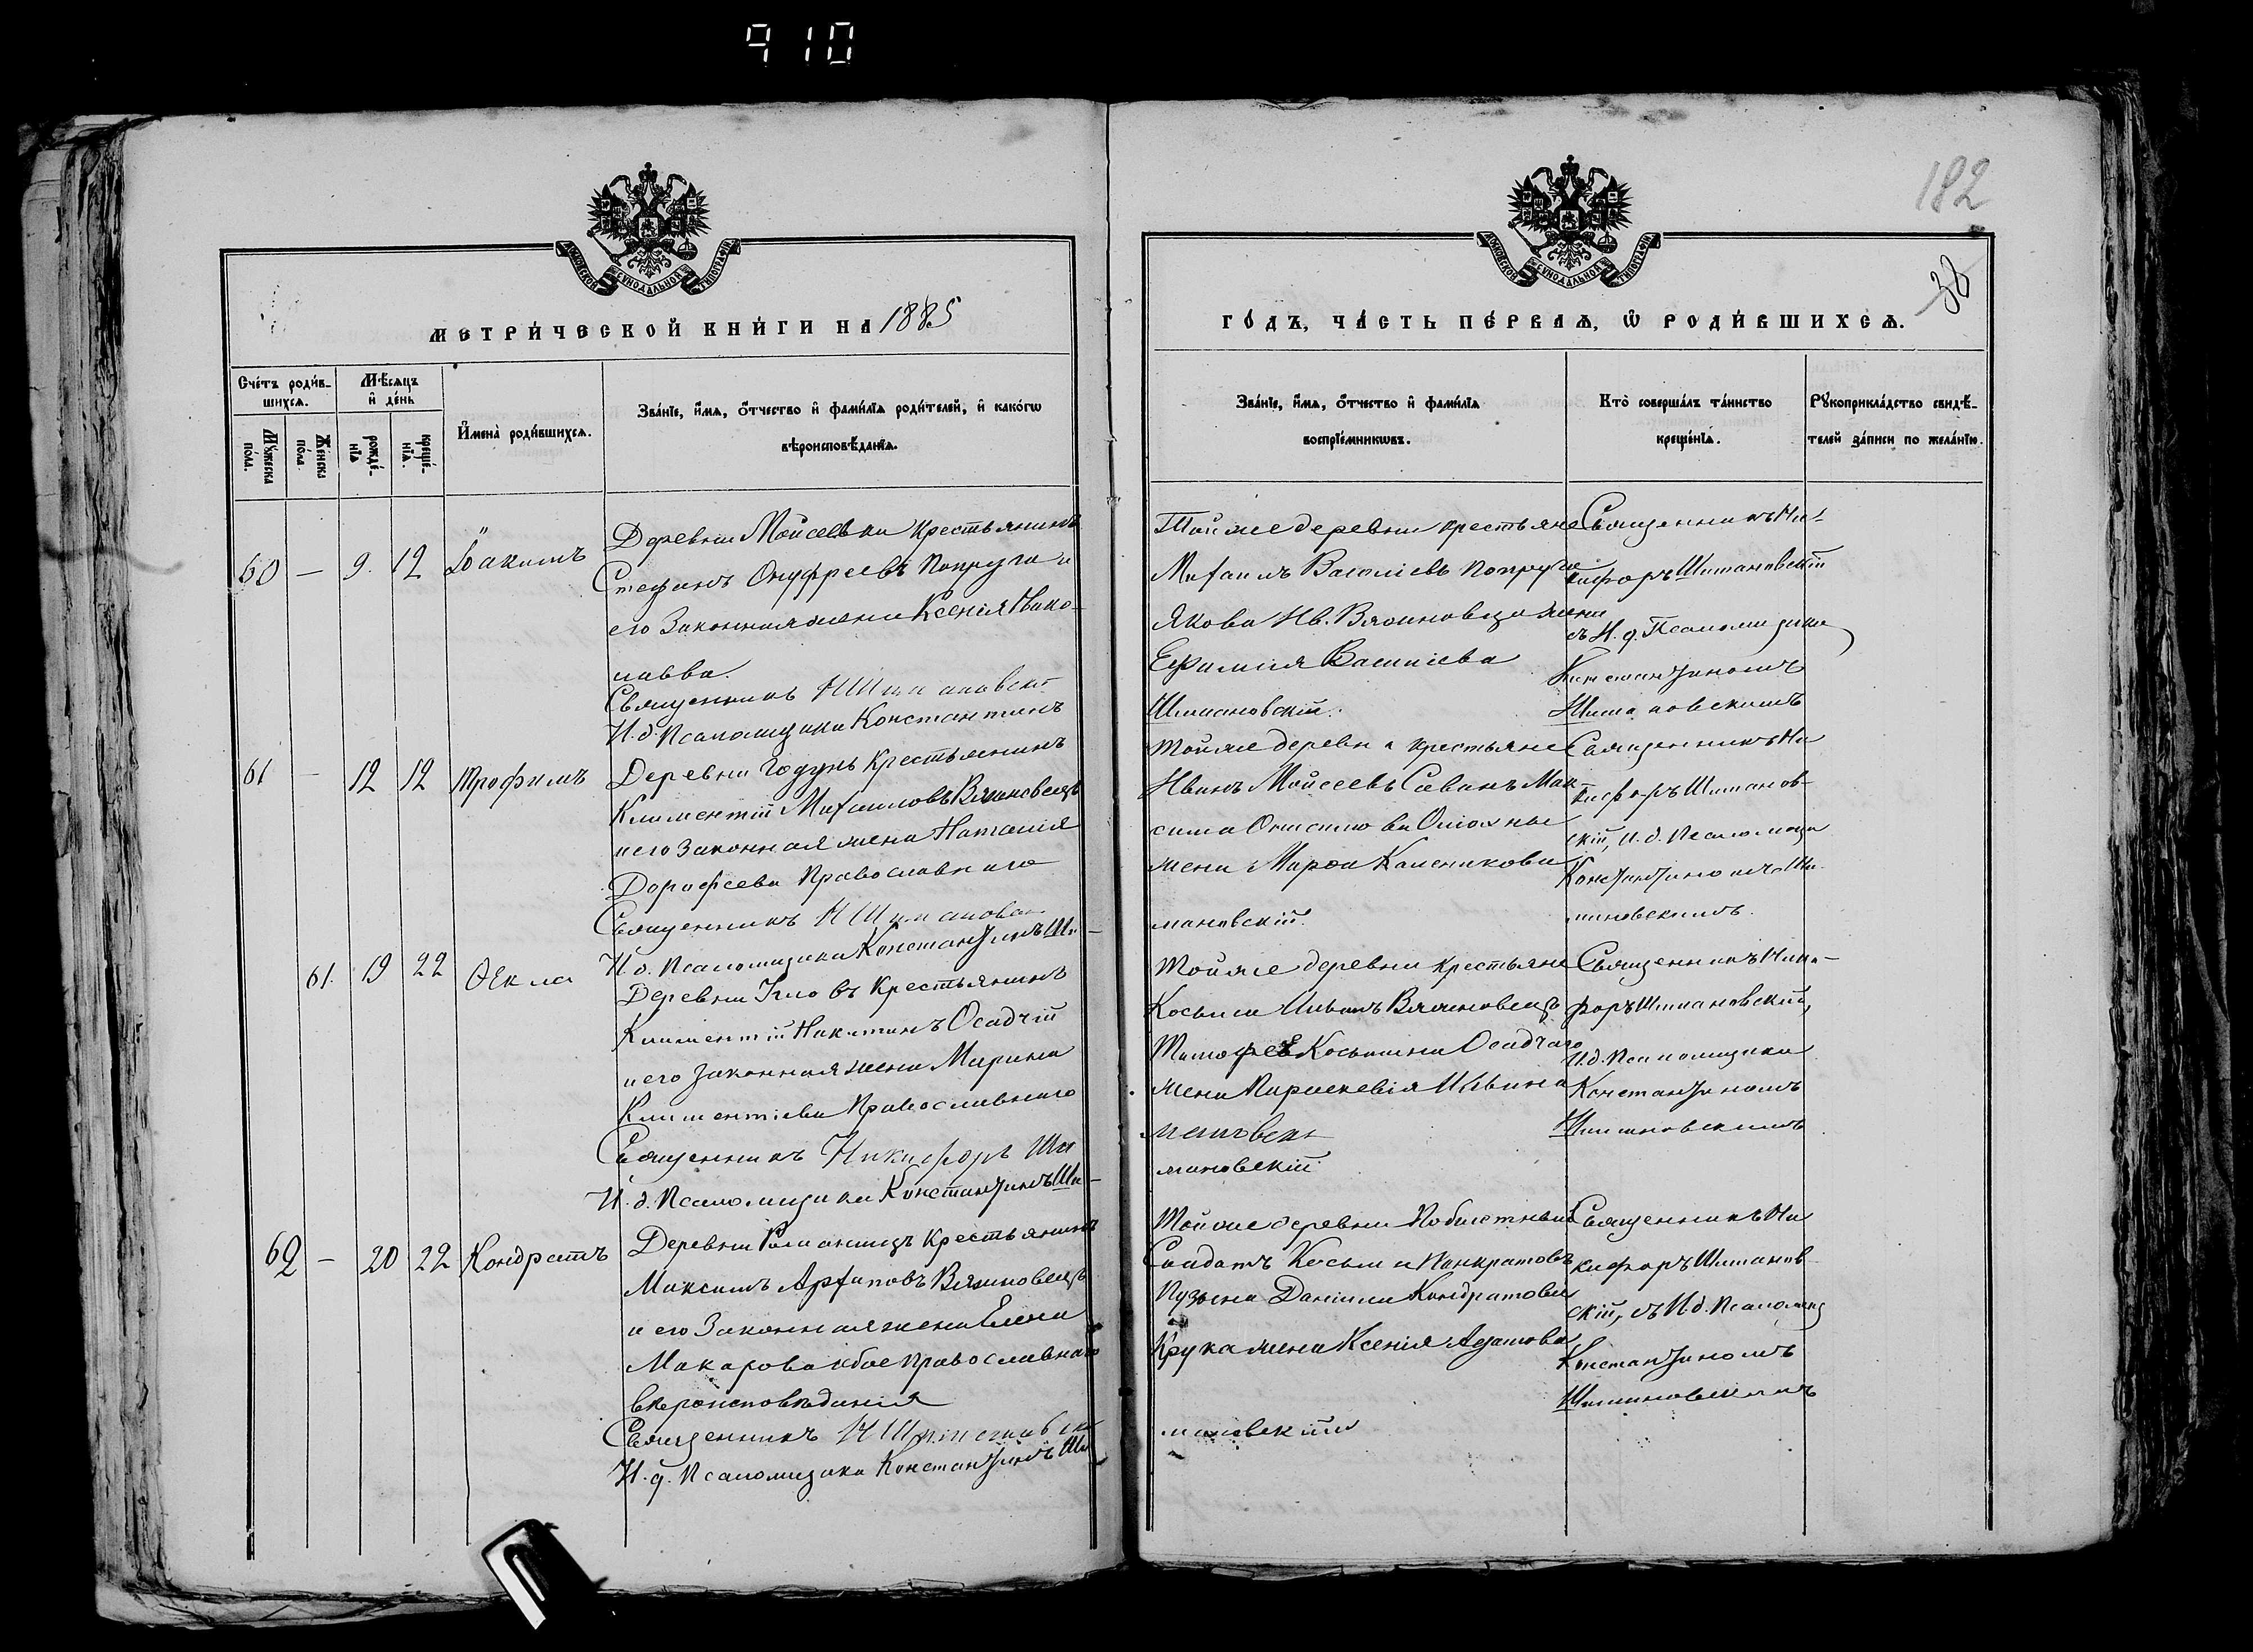 910
182
38
МОСКОВСКОЙ СѴНОДАЛЬНОЙ ТИПОГРАФІИ
МОСКОВСКОЙ СѴНОДАЛЬНОЙ ТИПОГРАФІИ
МЕТРИ́ЧЕСКОЙ КНИ́ГИ НА 1885
ГО́ДЪ, ЧА́СТЬ ПЕ́РВАѦ, Ѡ РОДИ́ВШИХСѦ.
Сче́тъ роди́в-
шихсѧ.
Мѣ́сѧцъ
и҆ де́нь
Мꙋ́жеска
по́ла.
Же́нска
по́ла.
рожде́-
нїѧ
креще́-
нїѧ.
И҆мена̀ роди́вшихсѧ.
Зва́нїе, и҆́мѧ, ѻ҆́тчество и҆ фами́лїѧ роди́телей, и҆ како́гѡ
вѣроисповѣ́данїѧ.
Зва́нїе, и҆́мѧ, ѻ҆́тчество и҆ фами́лїѧ
воспрїе́мникѡвъ.
Кто̀ соверша́лъ та́инство
креще́нїѧ.
Рꙋкоприкла́дство свидѣ́-
телей за́писи по жела́нїю.
60 — 9. 12 Іоакимъ
Деревни Мойсеевки крестьянинъ
Стефанъ Онуфреевъ Попруга и
его Законная жена Ксенія Нико-
лаева.
Священникъ Н Шимановск
И. д. Псаломщика Константинъ
Той же деревни крестьяне
Михаилъ Василіевъ Попруга
Якова Ив. Вязиновца жена
Ефимія Василіева
Шимановскій.
Священникъ Ни-
кифоръ Шимановскій
съ И. д. Псаломщика
Константиномъ
Шимановскимъ
61 — 12 12 Трофимъ
Деревни Годунъ Крестьянинъ
Климентій Михаиловъ Вязиновецъ
и его Законная жена Наталія
Дорофеева Православнаго
Священникъ Н Шимановск
И. д. Псаломщика Константинъ Ши-
Той же деревни крестьяне
Иванъ Мойсеевъ Савинъ Мак-
сима
жена Марфа
мановскій.
Священникъ Ни
кифоръ Шиманов-
скій, И. д. Псаломщи
Константиномъ Ши
мановскимъ.
61. 19 22 Ѳекла
Деревни крестьянинъ
Климентій Никитинъ Осадчій
и его Законная жена Марина
Климентіева Православнаго
Священникъ Никифоръ Ши
И. д. Псаломщика Константинъ Ши-
Той же деревни крестьяне
Косьма Ильинъ Вязиновецъ
Тимофея Косьмина Осадчаго
жена Параскевія Ильина
мановск
мановскій.
Священникъ Ники-
форъ Шимановскій,
И. д. Псаломщика
Константиномъ
Шимановскимъ
62 — 20 22 Кондратъ
Деревни крестьянинъ
Максимъ Архиповъ Вязиновецъ
и его Законная жена Елена
Макарова обое Православнаго
вероисповѣданія
Священникъ Н Шимановск
И. д. Псаломщика Константинъ Ши
Той же деревни билетный
Солдатъ Косьма Панкратовъ
Данііла Кондратова
Крука жена Ксенія
мановскій
Священникъ Ни
кифоръ Шиманов-
скій, съ И. д. Псаломщ
Константиномъ
Шимановскимъ